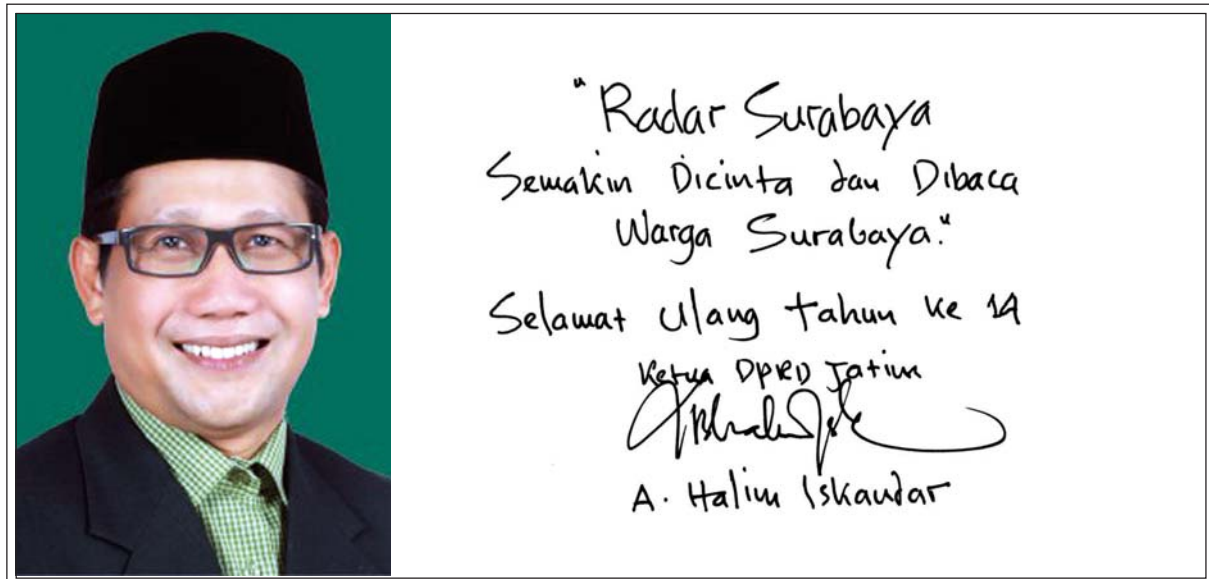 "Radar Surabaya
Semakin Dicinta dan Dibaca
Warga Surabaya."
Selamat Ulang tahun ke 14
Ketua DPRD Jatim
A. Halim Iskandar